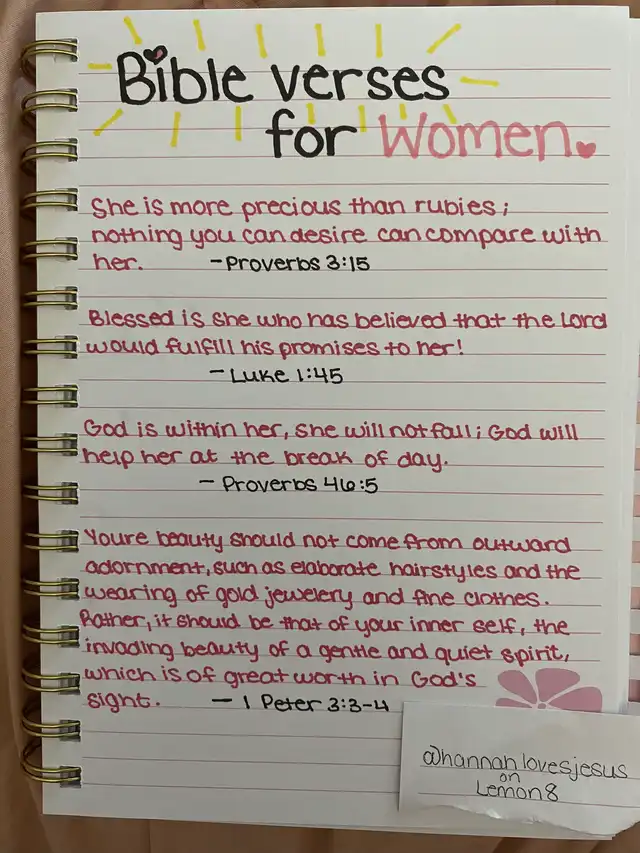 Bible verses
for Women.
She is more precious than rubies;
nothing you can desire can compare with
her. - Proverbs 3:15
Blessed is she who has believed that the Lord
would fulfill his promises to her!
- Luke 1:45
God is within her, she will not fall; God will
help her at the break of day.
- Proverbs 46:5
Youre beauty should not come from outward
adornment, such as elaborate hairstyles and the
wearing of gold jewelery and fine clothes.
Rather, it should be that of your inner self, the
invading beauty of a gentle and quiet spirit,
which is of great worth in God's
sight. - 1 Peter 3:3-4
@hannahlovesjesus
on
Lemon8